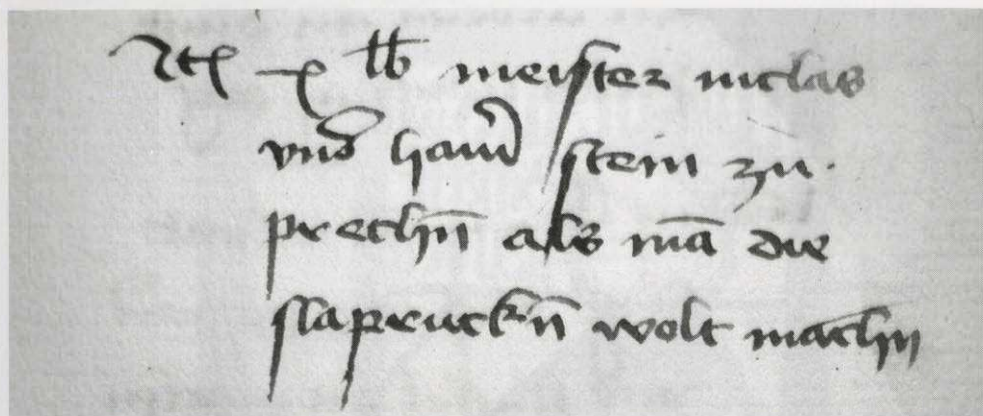 Itē x lb meister niclas
vnd hawē stein zu
prechn̄ als mā die
slapruckn̄ wolt machn